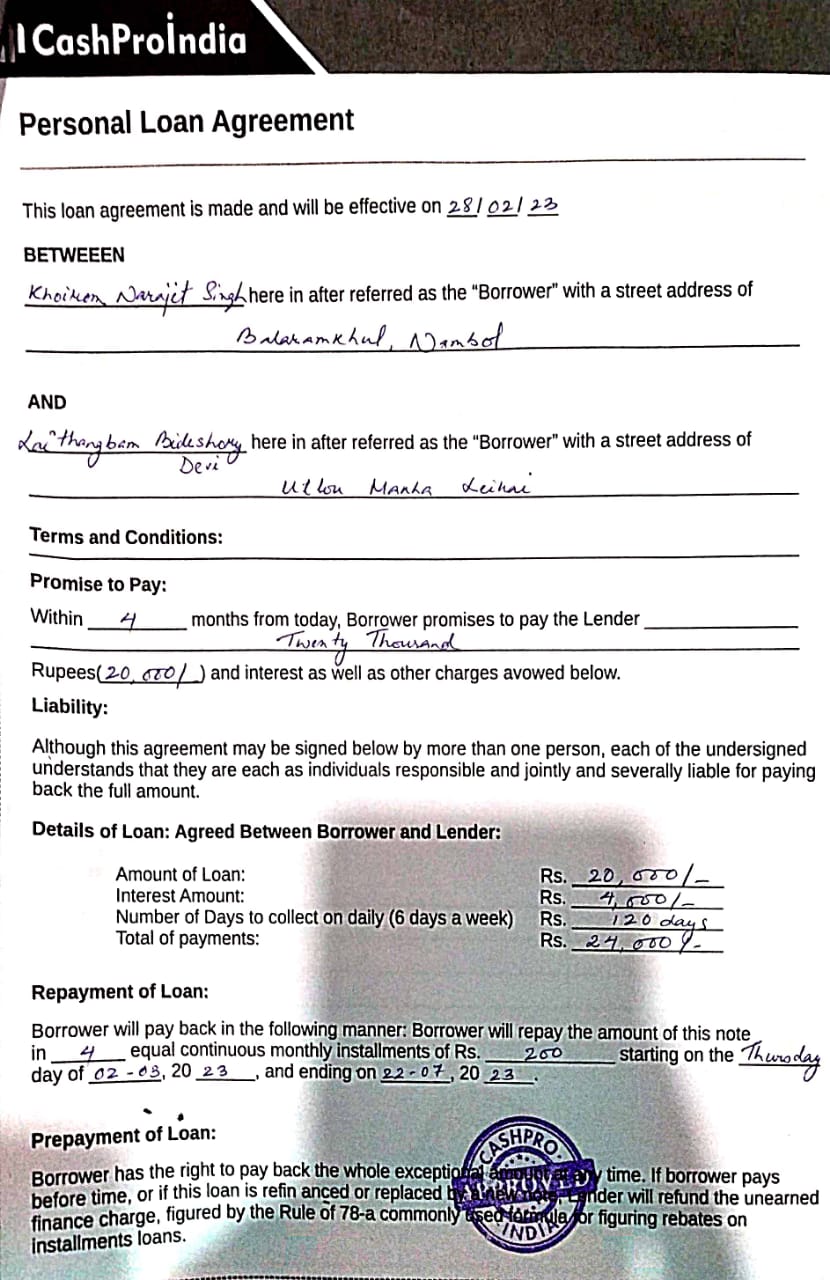 CashProIndia
Personal Loan Agreement
This loan agreement is made and will be effective on 28/02/23
BETWEEEN
Khoirom Narajit Singh here in after referred as the “Borrower” with a street address of
Balaramkhul, Nambol
AND
Laithangbam Bideshory here in after referred as the “Borrower” with a street address of
Devi
Utlou Leikai
Terms and Conditions:
Promise to Pay:
Within 4 months from today, Borrower promises to pay the Lender
Twenty Thousand
Rupees(20,000/-) and interest as well as other charges avowed below.
Liability:
Although this agreement may be signed below by more than one person, each of the undersigned
understands that they are each as individuals responsible and jointly and severally liable for paying
back the full amount.
Details of Loan: Agreed Between Borrower and Lender:
Amount of Loan: Rs. 20,000/-
Interest Amount: Rs. 4,000/-
Number of Days to collect on daily (6 days a week) Rs. 120 days
Total of payments: Rs. 24,000/-
Repayment of Loan:
Borrower will pay back in the following manner: Borrower will repay the amount of this note
in 4 equal continuous monthly installments of Rs. 200 starting on the Thursday
day of 02-03, 20 23, and ending on 22-07, 20 23.
Prepayment of Loan:
Borrower has the right to pay back the whole exceptional amount at any time. If borrower pays
before time, or if this loan is refin anced or replaced by a new note, Lender will refund the unearned
finance charge, figured by the Rule of 78-a commonly used formula for figuring rebates on
installments loans.
CASHPRO
INDIA